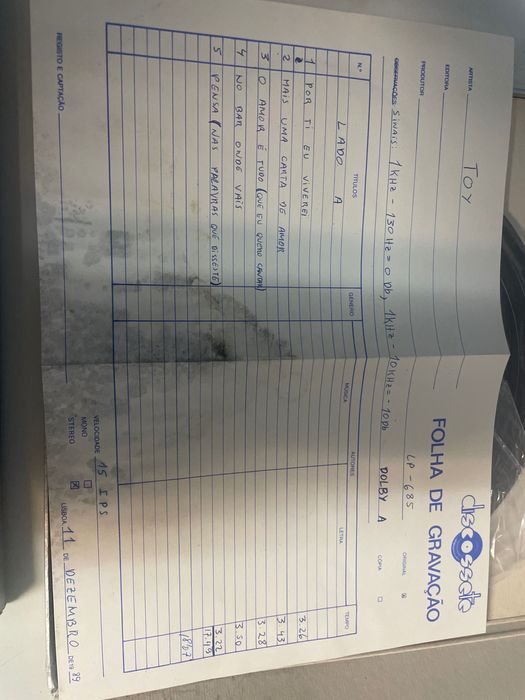 discossete
FOLHA DE GRAVAÇÃO
ARTISTA TOY
EDITORA LP-685 ORIGINAL ☒
PRODUTOR DOLBY A COPIA ☐
OBSERVAÇÕES SINAIS: 1KHz - 130Hz = 0 Db, 1KHz - 10KHz = -10Db
N.º TITULOS GENERO MÚSICA AUTORES LETRA TEMPO
LADO A
1 POR TI EU VIVEREI 3.26
2 MAIS UMA CARTA DE AMOR 3.43
3 O AMOR É TUDO (QUE EU QUERO CANTAR) 3.28
4 NO BAR ONDE VAIS 3.50
5 PENSA (NAS PALAVRAS QUE DISSESTE) 3.22
17.49
18:07
VELOCIDADE 15 IPS
MONO ☐
STEREO ☒
REGISTO E CAPTAÇÃO
LISBOA 11 DE DEZEMBRO DE 19 89